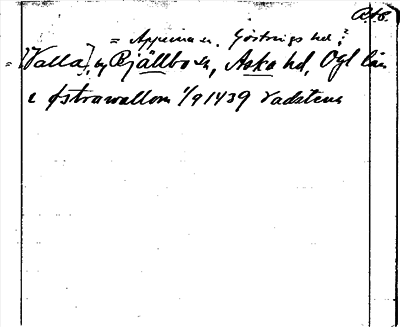 Avs.
= Appuna sn. Göstrings hd?
= [Valla], ug Bjällbo sn, Aska hd, Ögl län
i Østrawallom 1/9 1439 Vadstena